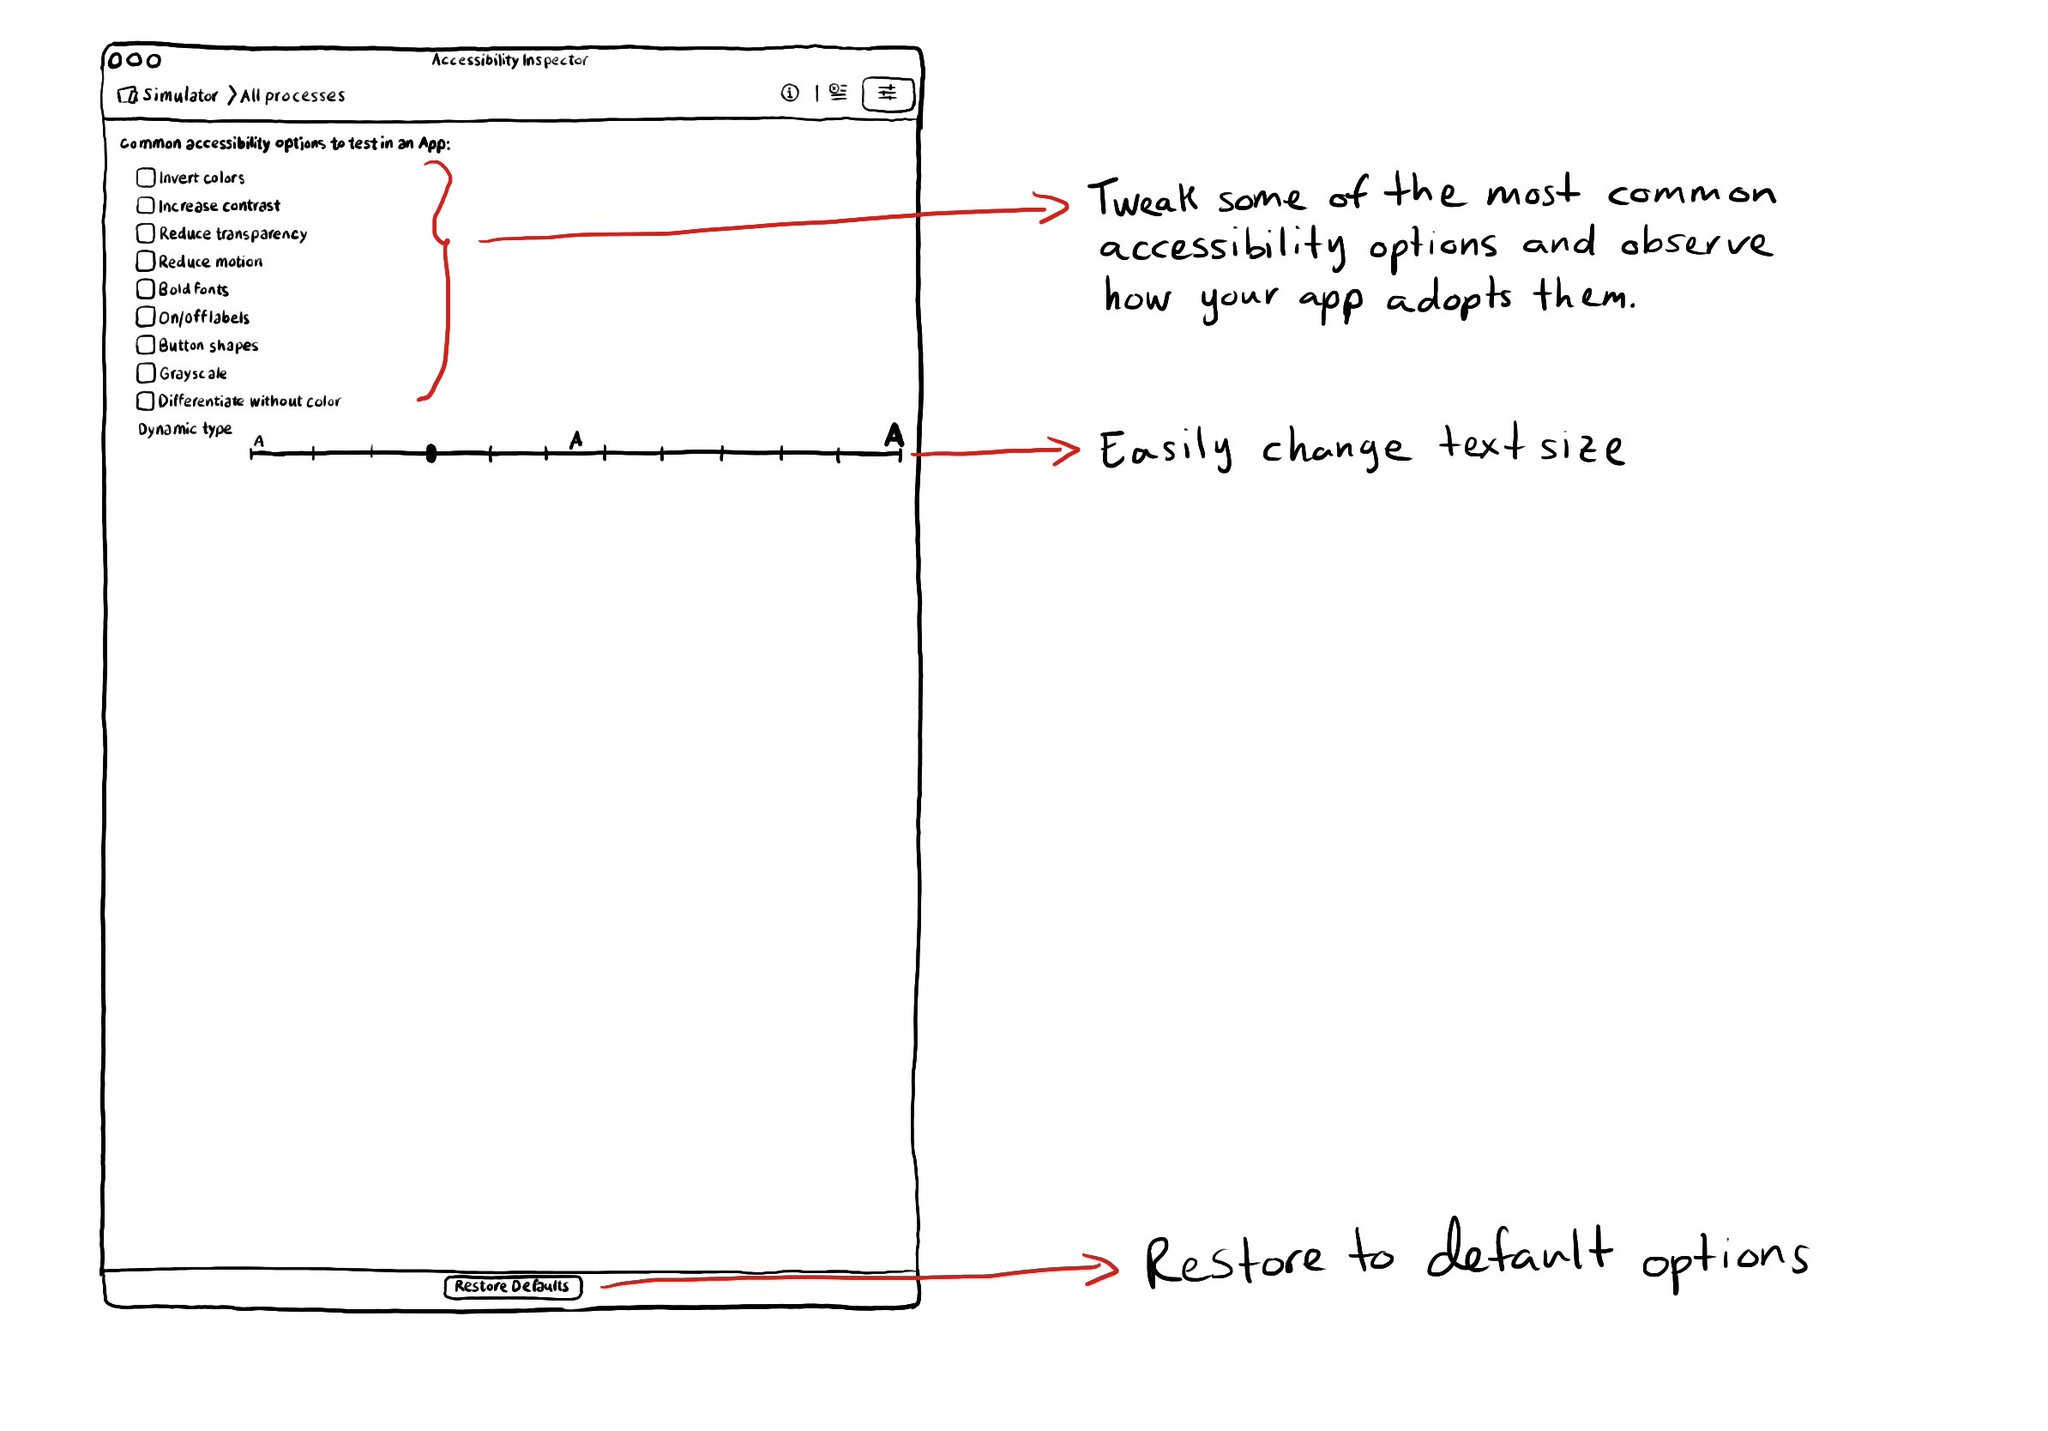 Accessibility Inspector
Simulator > All processes
Common accessibility options to test in an App:
Invert colors
Increase contrast
Reduce transparency
Reduce motion
Bold fonts
On/off labels
Button shapes
Grayscale
Differentiate without color
Dynamic type
A A A
Restore Defaults
Tweak some of the most common
accessibility options and observe
how your app adopts them.
Easily change text size
Restore to default options